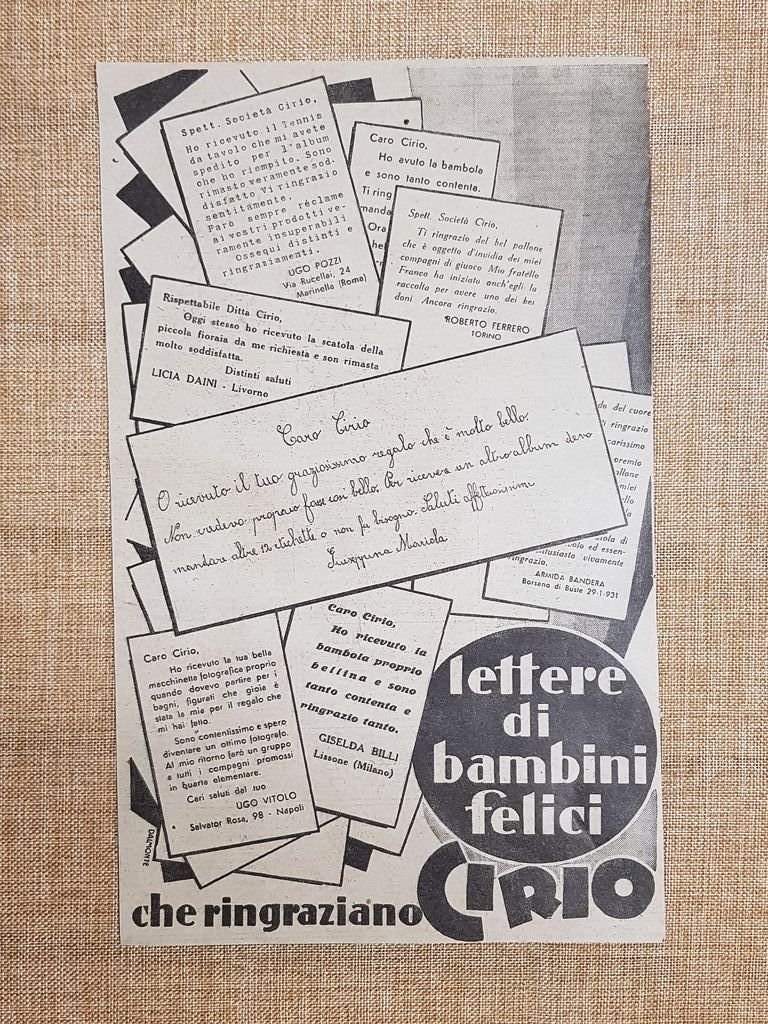 Spett. Società Cirio,
Ho ricevuto il Tennis
da tavolo che mi avete
spedito per l'album
che ho riempito. Sono
rimasto veramente sod-
disfatto Vi ringrazio
sentitamente.
Farò sempre réclame
ai vostri prodotti ve-
ramente insuperabili
Ossequi distinti e
ringraziamenti.
UGO POZZI
Via Rucellai, 24
Marinella (Roma)
Caro Cirio,
Ho avuto la bambola
e sono tanto contenta.
Ti ring
manda
Ora
he
Spett. Società Cirio,
Ti ringrazio del bel pallone
che è oggetto d'invidia dei miei
compagni di giuoco Mio fratello
Franco ha iniziato anch'egli la
raccolta per avere uno dei bei
doni Ancora ringrazio.
ROBERTO FERRERO
TORINO
Rispettabile Ditta Cirio,
Oggi stesso ho ricevuto la scatola della
piccola fioraia da me richiesta e son rimasta
molto soddisfatta.
Distinti saluti
LICIA DAINI - Livorno
Caro Cirio
O ricevuto il tuo graziosissimo regalo che è molto bello.
Non credevo propraio fosse cosi bello. Per ricevere un altro album devo
mandare altre 12 etichette o non fa bisogno. Saluti affettuosissimi
Giuseppina Mariola
do del cuore
ti ringrazio
carissimo
premio
allone
miei
ello
tola di
olo ed essen-
ntusiasta vivamente
ringrazio.
ARMIDA BANDERA
Borsano di Busto 29-1-931
Caro Cirio,
Ho ricevuto la tua bella
macchinetta fotografica proprio
quando dovevo partire per i
bagni, figurati che gioia è
stata la mia per il regalo che
mi hai fatto.
Sono contentissimo e spero
diventare un ottimo fotografo.
Al mio ritorno farò un gruppo
a tutti i compagni promossi
in quarta elementare.
Cari saluti dal tuo
UGO VITOLO
Salvator Rosa, 98 - Napoli
Caro Cirio,
Ho ricevuto la
bambola proprio
bellina e sono
tanto contenta e
ringrazio tanto.
GISELDA BILLI
Lissone (Milano)
DALMONTE
lettere
di
bambini
felici
che ringraziano CIRIO